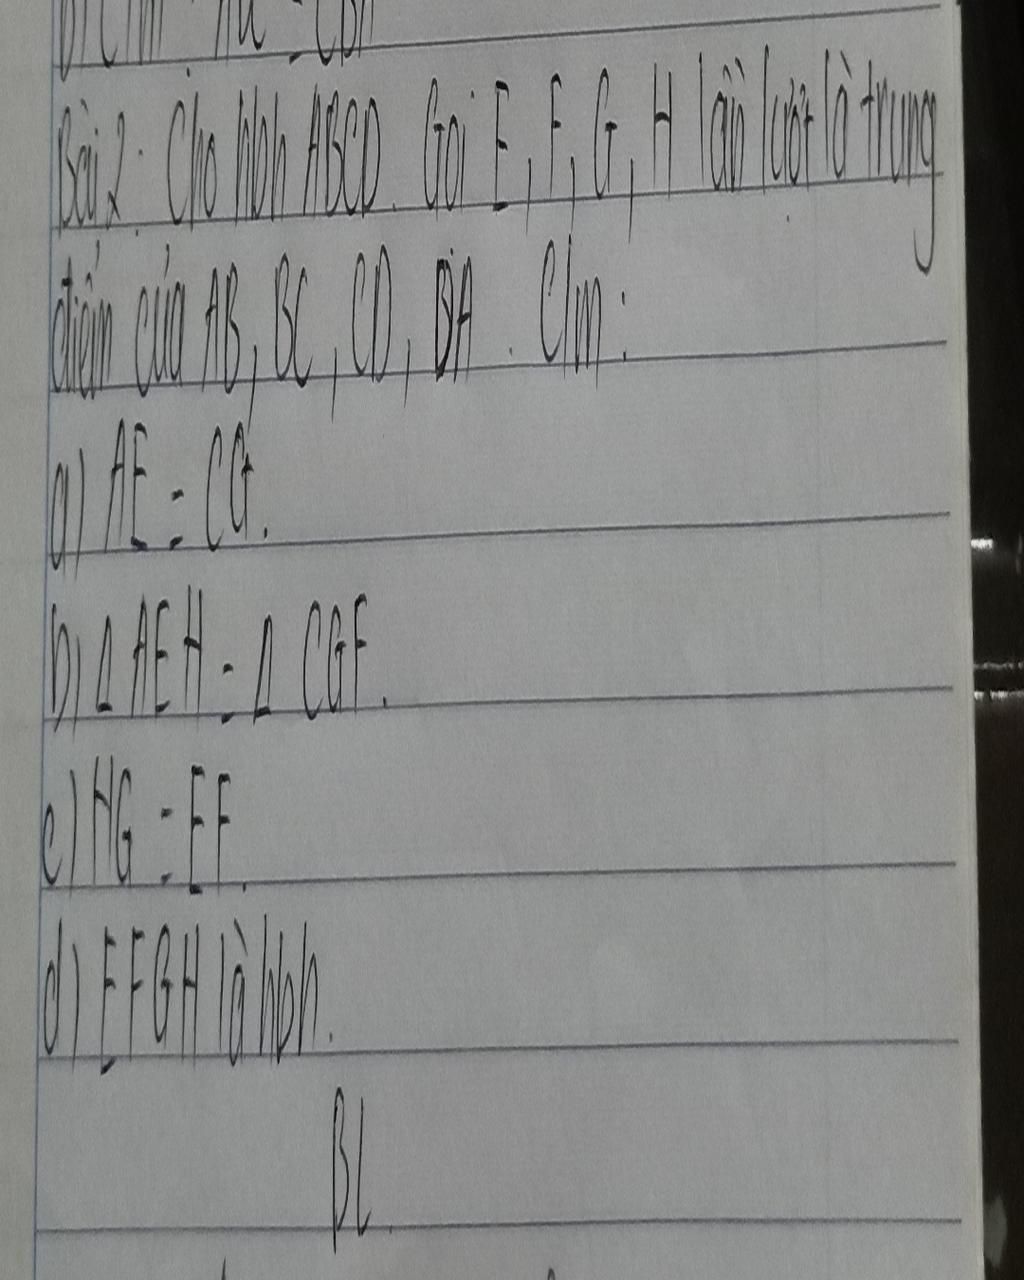 Bài 2: Cho hbh ABCD. Gọi E, F, G, H lần lượt là trung
điểm của AB, BC, CD, DA. C/m:
a) AE = CG.
b) Δ AEH = Δ CGF.
c) HG = EF.
d) EFGH là hbh.
BL